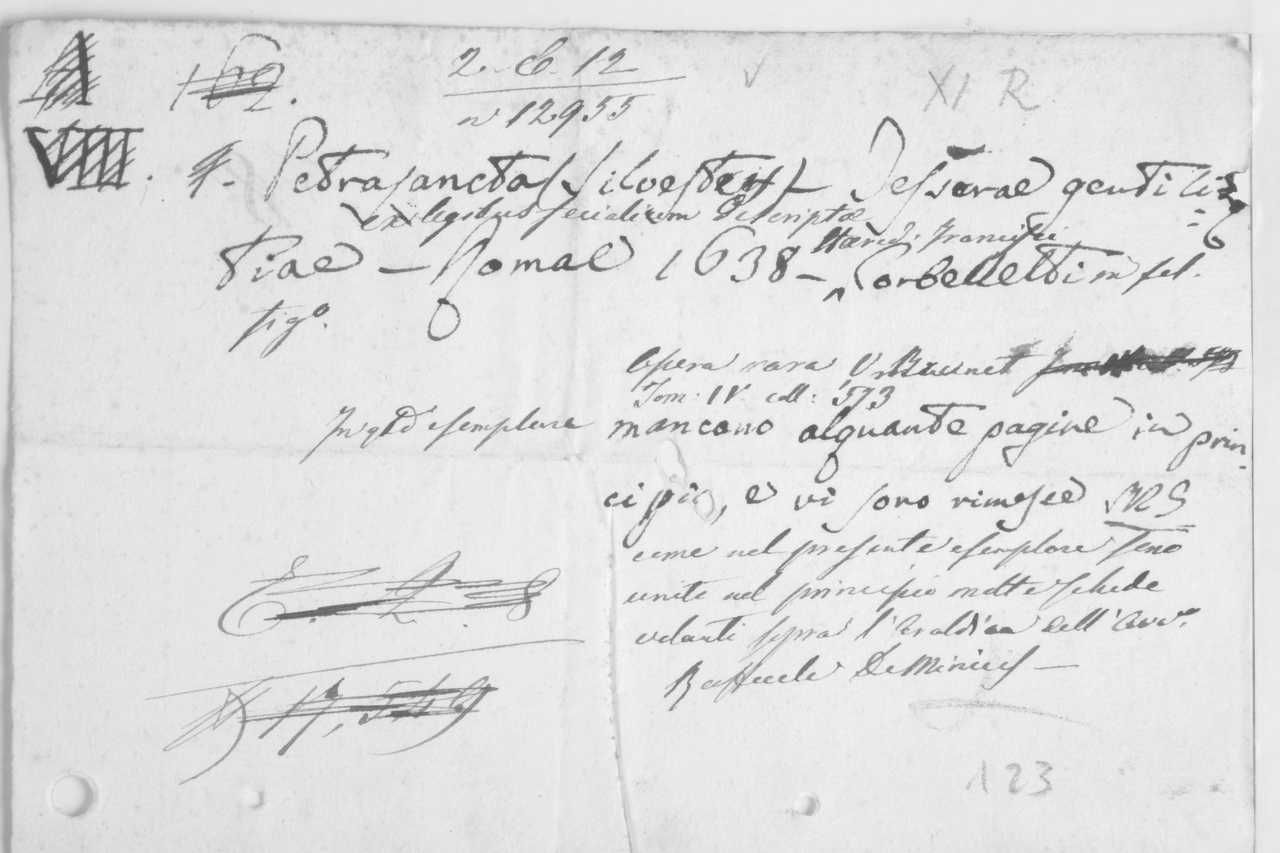 162.
2. C. 12
n 12955
XI R
VIIII. 4. Petrasanctas Silvester Tesserae gentili=
ex legibus fecialium descriptae
tiae — Romae 1638 — Haered: Francisci Corbelletti in fol.
fig°.
Opera rara V. Brunet
Tom: IV. coll: 573
In q.to esemplare mancano alquante pagine in prin-
cipio, e vi sono rimesse MRS
come nel presente esemplare sono
unite nel principio molte schede
volanti sopra l'Araldica dell'Avv.°
Raffaele De Minicis —
17,549
123